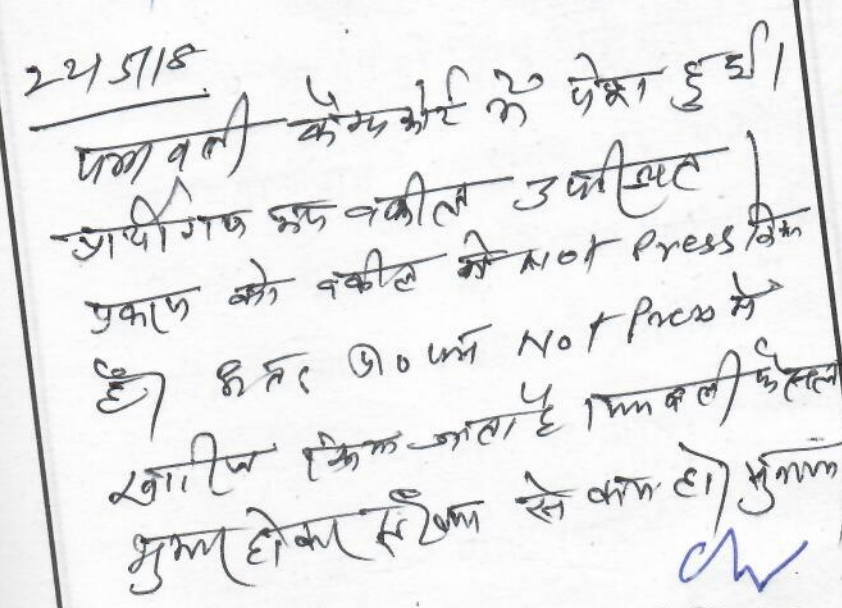 22/5/18
पत्रावली कैम्पकोर्ट में पेश हुई।
प्रार्थीगण मय वकील उपस्थित।
प्रकरण को वकील ने Not Press किया
है। अतः प्रा० पत्र Not Press में
खारिज किया जाता है। पत्रावली फैसल
शुमार होकर से कम हो।